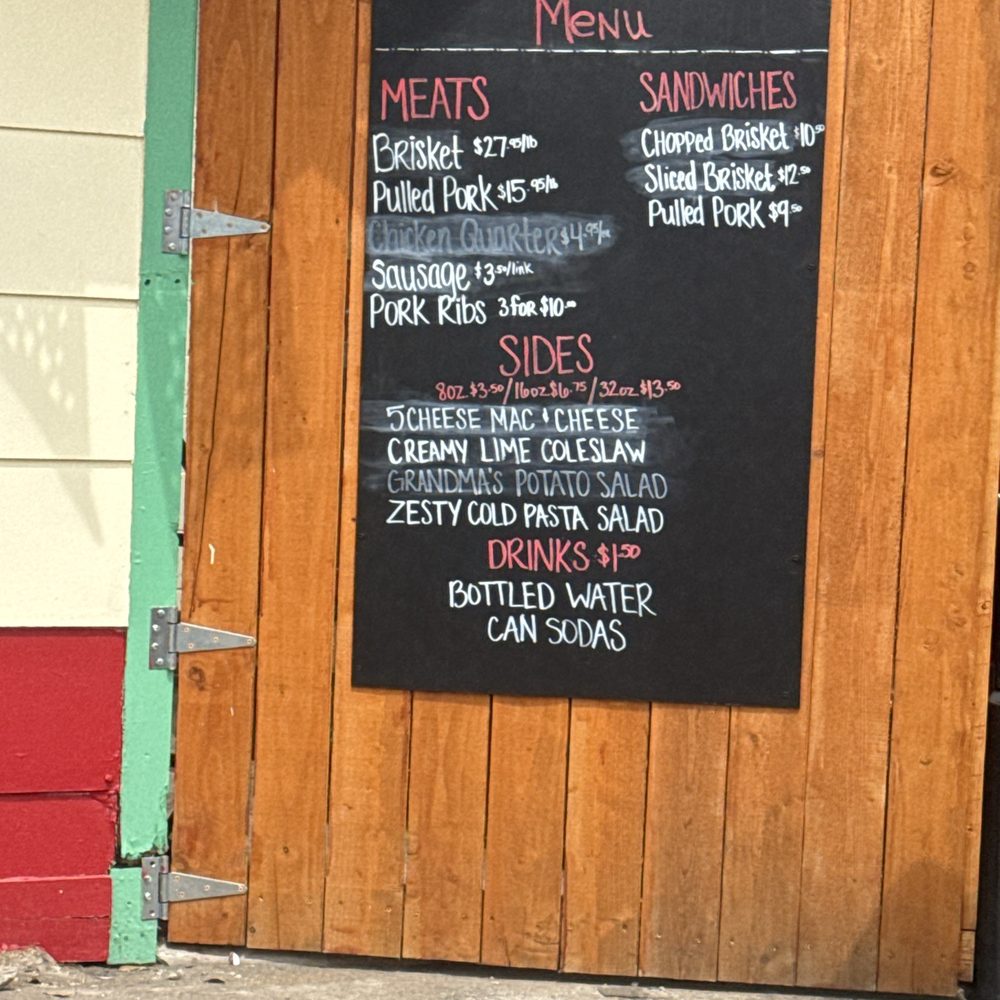 Menu
MEATS
Brisket $27.95/lb
Pulled Pork $15.95/lb
Chicken Quarter $4.95/
Sausage $3.50/link
Pork Ribs 3 for $10.00
SANDWICHES
Chopped Brisket $10.50
Sliced Brisket $12.50
Pulled Pork $9.50
SIDES
8oz $3.50/16oz $6.75/32oz $13.50
5 CHEESE MAC & CHEESE
CREAMY LIME COLESLAW
GRANDMA'S POTATO SALAD
ZESTY COLD PASTA SALAD
DRINKS $1.50
BOTTLED WATER
CAN SODAS